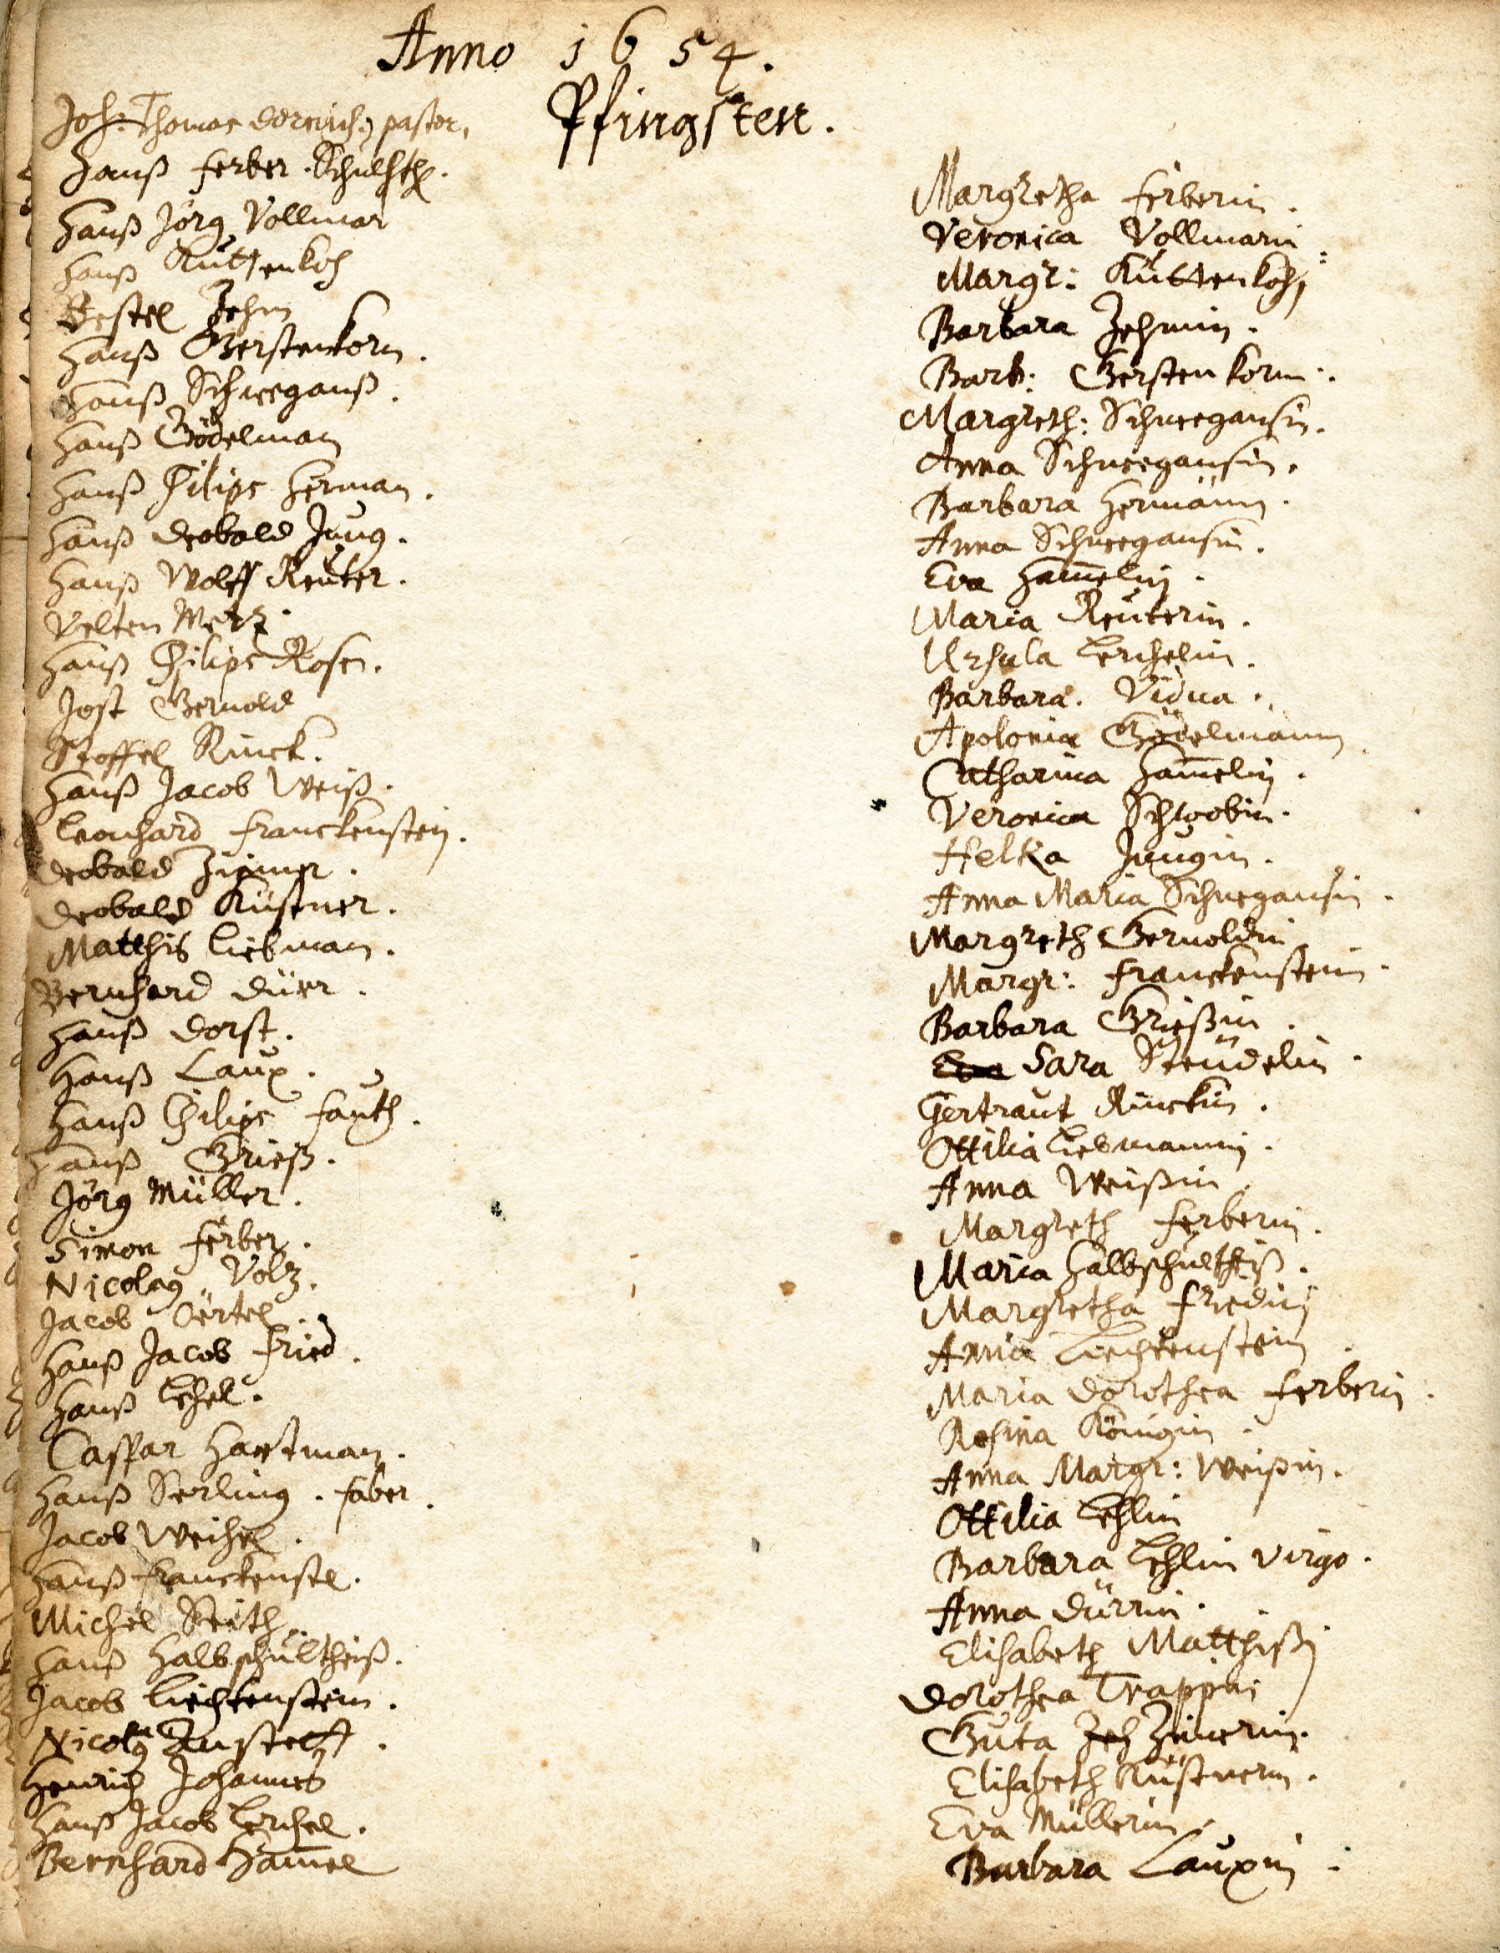 Anno 1654.
Pfingsten.
Joh: Thomas pastor,
Hanß Ferber. Schulth.
Hanß Jörg Vollmar
Hanß Kuttenkoh
Hanß Gerstenkorn.
Hanß Schneeganß.
Hanß Gödelman
Hanß Philips Herman.
Hanß Deobald Jung.
Hanß Wolff Reuter.
Velten Merz.
Hanß Philips Rosen.
Jost Gernold
Stoffel Rinck.
Hanß Jacob Weiß.
Leonhard Franckenstein.
Deobald
Deobald Küstner.
Matthis Liebman.
Bernhard Dürr.
Hanß Dorst.
Hanß Laux.
Hanß Philips Fauth.
Hanß Grieß.
Jörg Müller.
Simon Ferber.
Nicolaus Volz.
Jacob Örtel.
Hanß Jacob Fried.
Hanß Lehel.
Caspar Hartman.
Hanß Serling. faber.
Jacob Weihel.
Hanß Franckenste.
Michel Veith.
Hanß Halbschultheiß.
Jacob Liechtenstein.
Nicolaus
Henrich Johannes
Hanß Jacob Lerchel.
Bernhard Ham̄el
Margretha Ferberin.
Veronica Vollmarin.
Margr: Kuttenkoh,
Barbara Zehmin.
Barb: Gerstenkorn.
Margreth: Schneegansin.
Anna Schneegansin.
Barbara Hermänn.
Anna Schneegansin.
Eva Ham̄elin.
Maria Reuterin.
Ursula Lerchelin.
Barbara. Vidua.
Apolonia Gödelmänn.
Catharina Ham̄elin.
Veronica Schwobin.
Jungin.
Anna Maria Schnegansin.
Margreth Gernoldin
Margr: Franckenstein.
Barbara Grießin.
Eva Sara Steudelin.
Gertraut Rinckin.
Ottilia Liebmannin.
Anna Weißin.
Margreth Ferberin.
Maria Halbschultheiß.
Margretha Friedin
Anna Liechtenstein.
Maria Dorothea Ferberin.
Rosina Königin.
Anna Margr: Weißin.
Ottilia Lehlin
Barbara Lehlin virgo.
Anna Dürrin.
Elisabeth Matthißin
Dorothea Trappin
Guta
Elisabeth Küstnerin.
Eva Müllerin.
Barbara Lauxin.